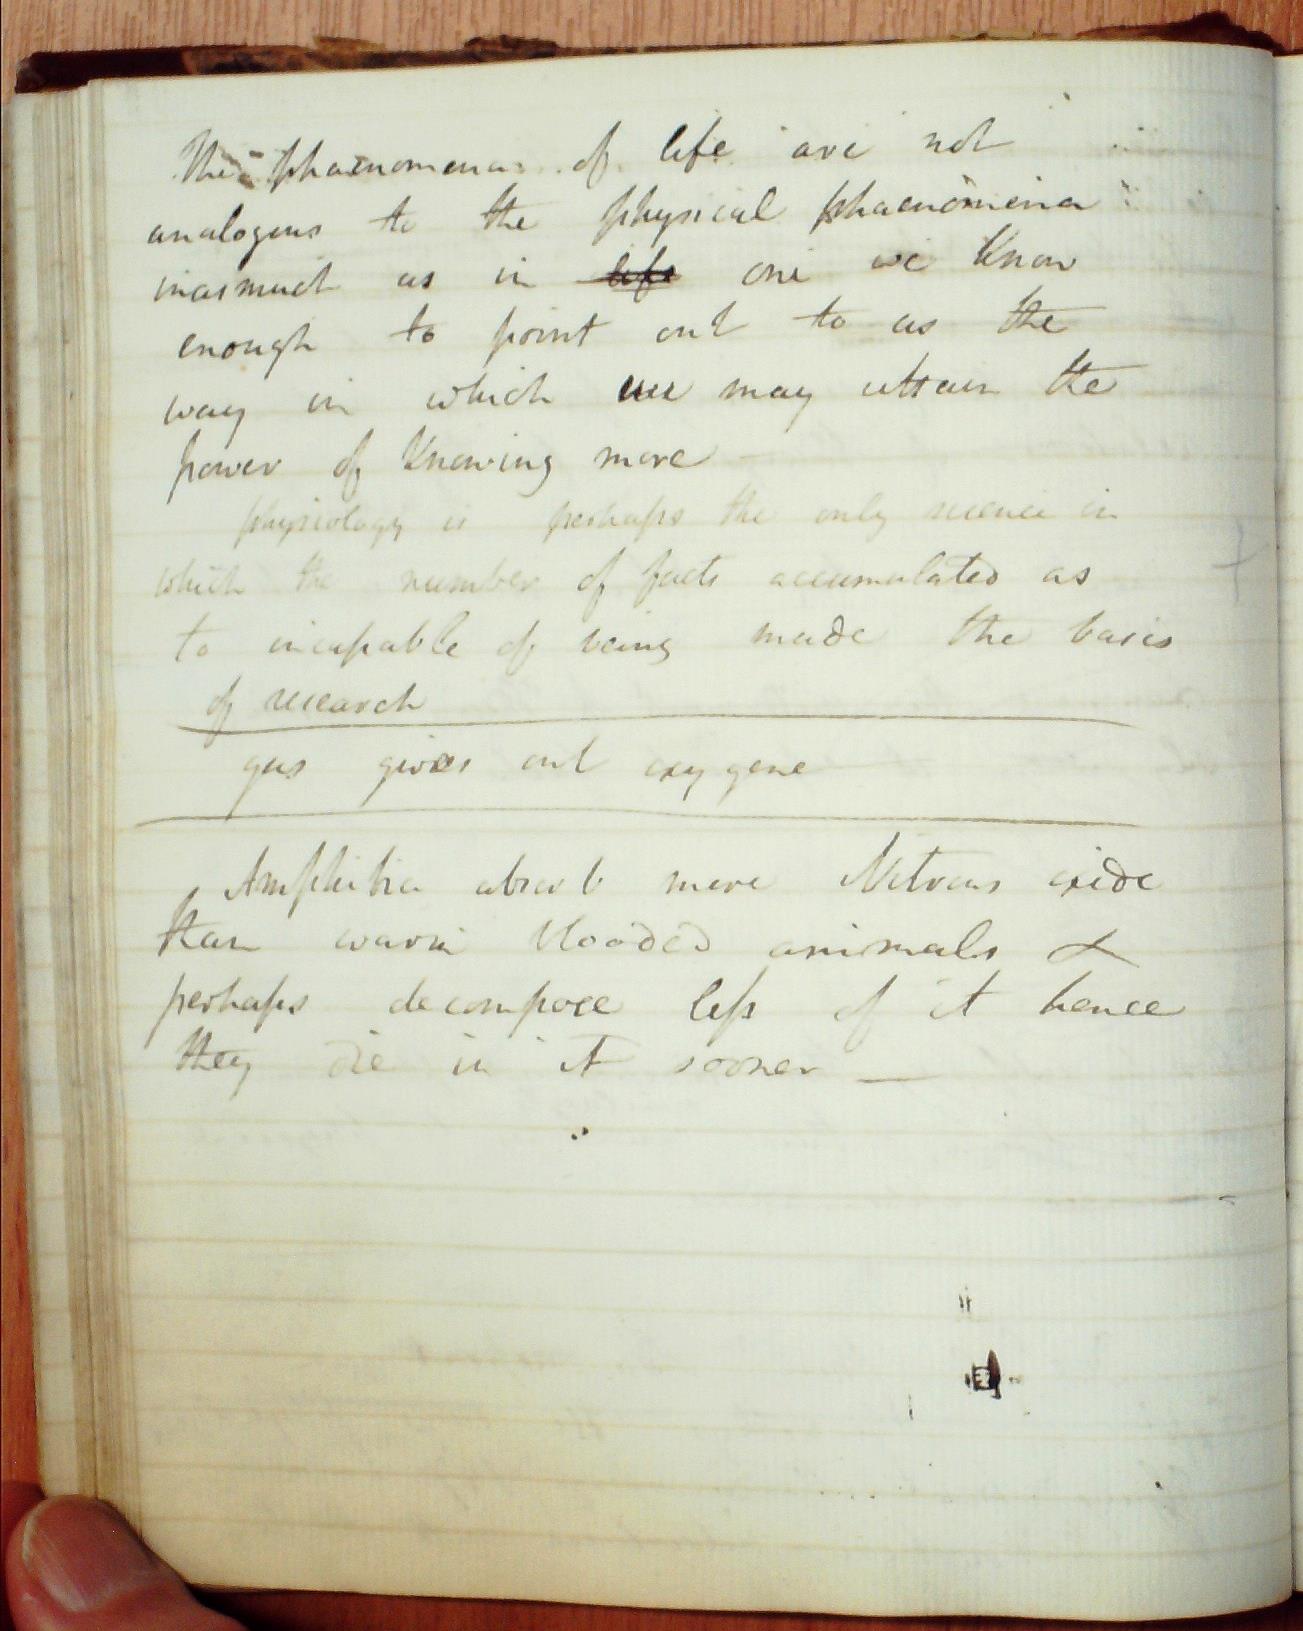 The phaenomena of life are not
analogous to the physical phaenomena
inasmuch as in life one we know
enough to point out to us the
way in which we may attain the
power of knowing more
physiology is perhaps the only science in
which the number of facts accumulated as
to incapable of being made the basis
of research
gas gives out oxygene
Amphibia absorb more Nitrous oxide
than warm blooded animals &
perhaps decompose less of it hence
they die in it sooner —